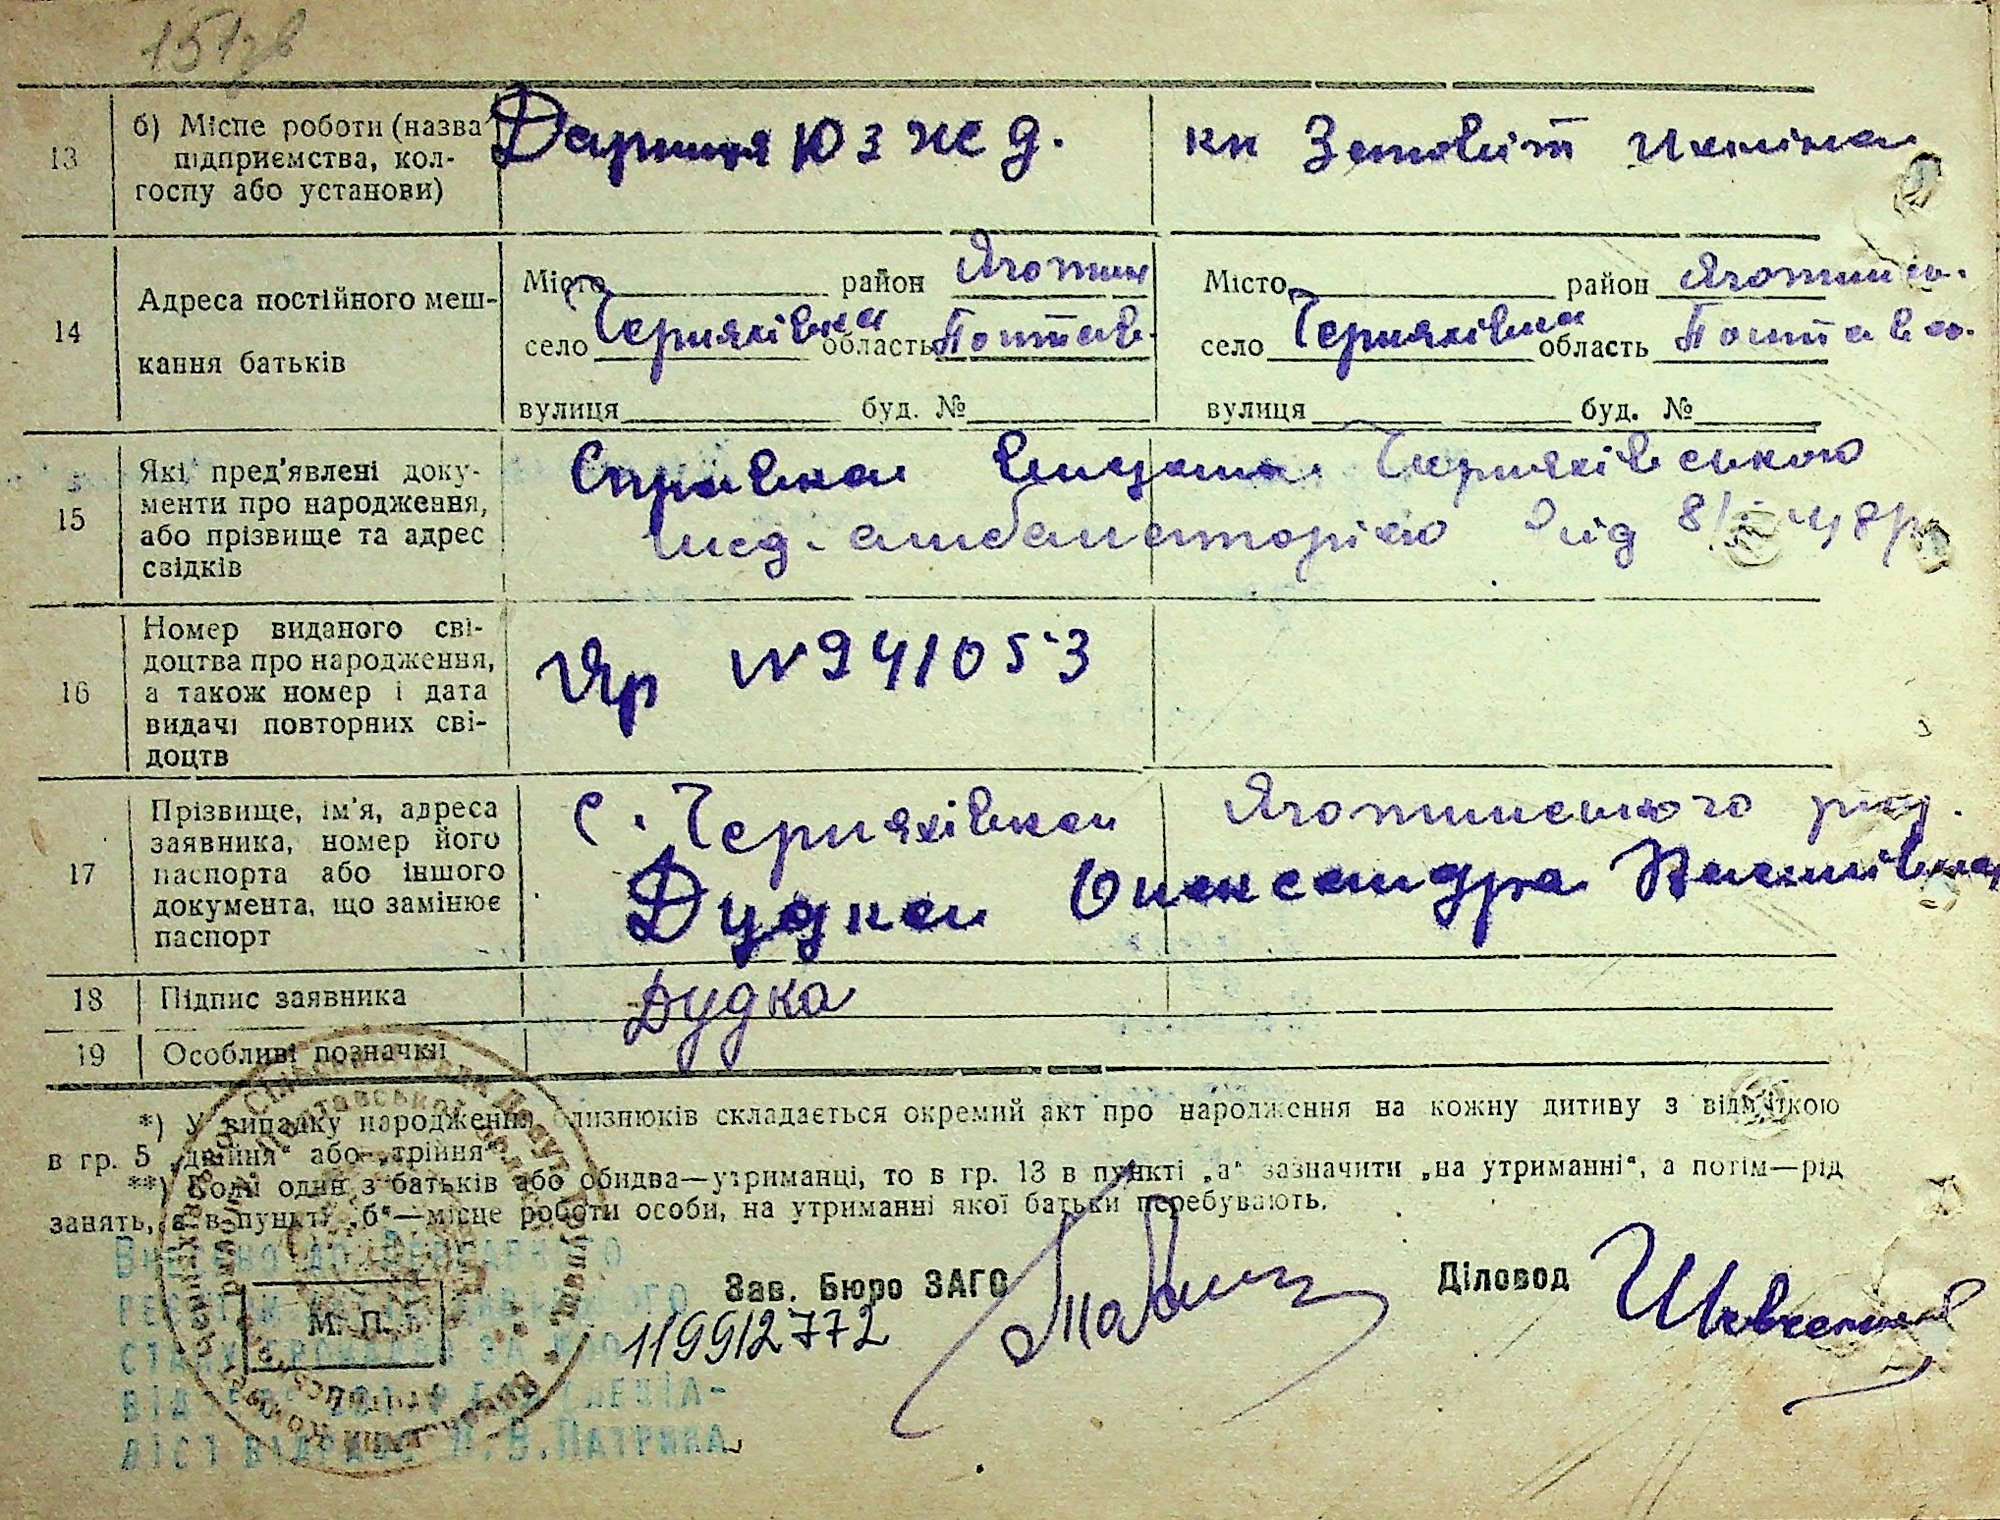 151зв
13 б) Місце роботи (назва підприємства, колгоспу або установи)
Дарниця Ю З Ж Д. кк Заповіт Ілліча
14 Адреса постійного мешкання батьків
Місто район Яготин Місто район Яготинсь.
село Черняхівка область Полтав. село Черняхівка область Полтавсь.
вулиця буд. № вулиця буд. №
15 Які пред'явлені документи про народження, або прізвище та адрес свідків
Справка видана Черняхівською
мед. амбаляторією від 8/ 48р
16 Номер виданого свідоцтва про народження, а також номер і дата видачі повторних свідоцтв
Яр №941053
17 Прізвище, ім'я, адреса заявника, номер його паспорта або іншого документа, що замінює паспорт
с. Черняхівка Яготинського рай.
Дудка Олександра
18 Підпис заявника Дудка
19 Особливі позначки
*) У випадку народження близнюків складається окремий акт про народження на кожну дитину з відміткою
в гр. 5 „двійня“ або „трійня“.
**) Коли один з батьків або обидва—утриманці, то в гр. 13 в пункті „а“ зазначити „на утриманні“, а потім—рід
занять, а в пункті „б“—місце роботи особи, на утриманні якої батьки перебувають.
Внесено до Державного
М. П.
Зав. Бюро ЗАГС Діловод
119912772